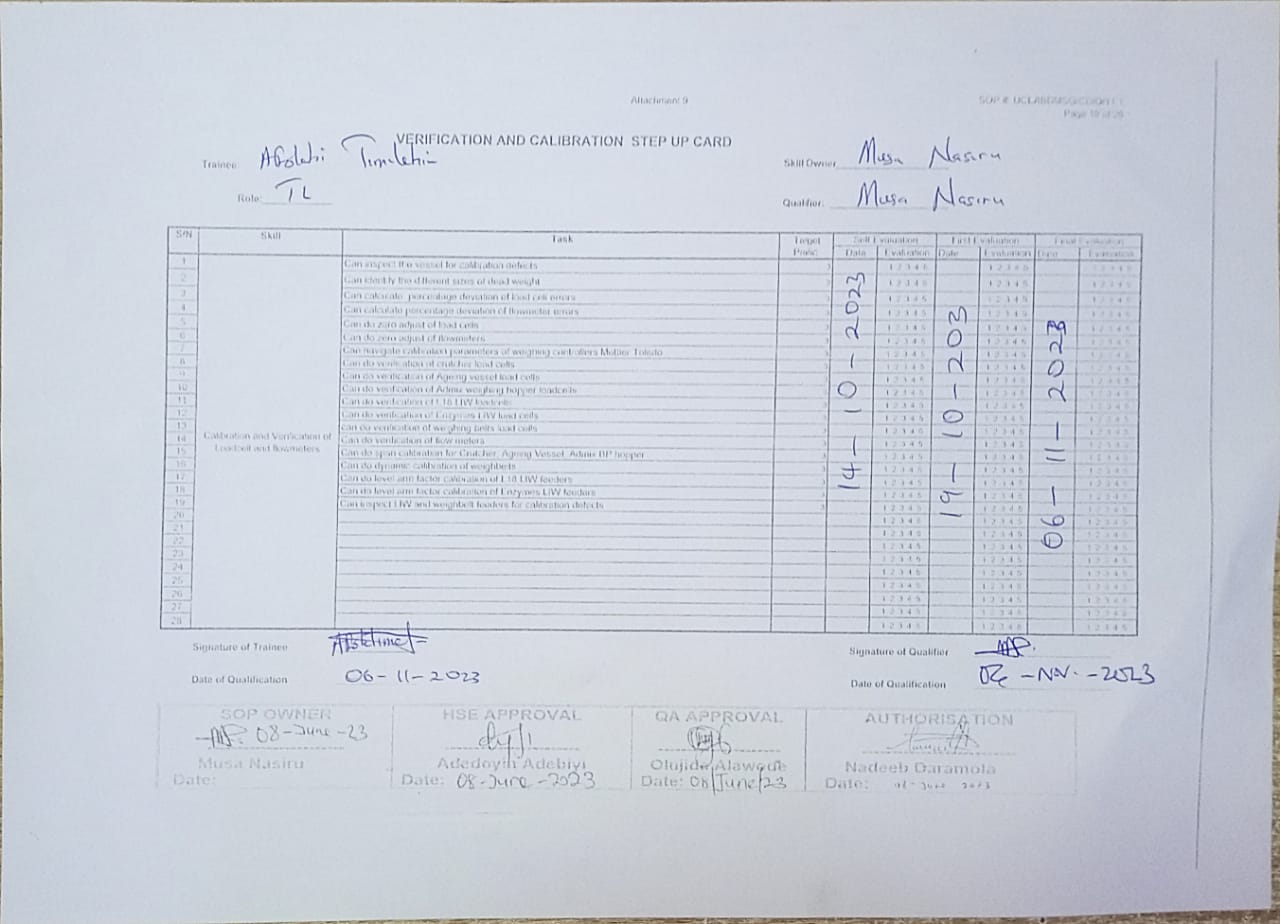 Attachment 9
Page 19 of 26
VERIFICATION AND CALIBRATION STEP UP CARD
Trainee: Afolabi Timilehin
Skill Owner Musa Nasiru
Role: TL
Qualifier: Musa Nasiru
S/N Skill Task Target Self Evaluation First Evaluation Final Evaluation
Date Evaluation Date Evaluation Date Evaluation
Calibration and Verification of Loadcell and flowmeters
1 Can inspect the vessel for calibration defects 1 2 3 4 5 1 2 3 4 5 1 2 3 4 5
2 Can identify the different sizes of dead weight 1 2 3 4 5 1 2 3 4 5 1 2 3 4 5
3 Can calculate percentage deviation of load cell errors 1 2 3 4 5 1 2 3 4 5 1 2 3 4 5
4 Can calculate percentage deviation of flowmeter errors 1 2 3 4 5 1 2 3 4 5 1 2 3 4 5
5 Can do zero adjust of load cells 1 2 3 4 5 1 2 3 4 5 1 2 3 4 5
6 Can do zero adjust of flowmeters 1 2 3 4 5 1 2 3 4 5 1 2 3 4 5
7 Can navigate calibration parameters of weighing controllers Mettler Toledo 1 2 3 4 5 1 2 3 4 5 1 2 3 4 5
8 Can do verification of crutcher load cells 1 2 3 4 5 1 2 3 4 5 1 2 3 4 5
9 Can do verification of Ageing vessel load cells 1 2 3 4 5 1 2 3 4 5 1 2 3 4 5
10 Can do verification of Admix weighing hopper loadcells 1 2 3 4 5 1 2 3 4 5 1 2 3 4 5
11 Can do verification of L18 LIW loadcells 1 2 3 4 5 1 2 3 4 5 1 2 3 4 5
12 Can do verification of Enzymes LIW load cells 1 2 3 4 5 1 2 3 4 5 1 2 3 4 5
13 can do verification of weighing belts load cells 1 2 3 4 5 1 2 3 4 5 1 2 3 4 5
14 Can do verification of flow meters 1 2 3 4 5 1 2 3 4 5 1 2 3 4 5
15 Can do span calibration for Crutcher, Ageing Vessel, Admix BP hopper 1 2 3 4 5 1 2 3 4 5 1 2 3 4 5
16 Can do dynamic calibration of weighbelts 1 2 3 4 5 1 2 3 4 5 1 2 3 4 5
17 Can do level arm factor calibration of L18 LIW feeders 1 2 3 4 5 1 2 3 4 5 1 2 3 4 5
18 Can do level arm factor calibration of Enzymes LIW feeders 1 2 3 4 5 1 2 3 4 5 1 2 3 4 5
19 Can inspect LIW and weighbelt feeders for calibration defects 1 2 3 4 5 1 2 3 4 5 1 2 3 4 5
20 1 2 3 4 5 1 2 3 4 5 1 2 3 4 5
21 1 2 3 4 5 1 2 3 4 5 1 2 3 4 5
22 1 2 3 4 5 1 2 3 4 5 1 2 3 4 5
23 1 2 3 4 5 1 2 3 4 5 1 2 3 4 5
24 1 2 3 4 5 1 2 3 4 5 1 2 3 4 5
25 1 2 3 4 5 1 2 3 4 5 1 2 3 4 5
26 1 2 3 4 5 1 2 3 4 5 1 2 3 4 5
27 1 2 3 4 5 1 2 3 4 5 1 2 3 4 5
28 1 2 3 4 5 1 2 3 4 5 1 2 3 4 5
14-10-2023
19-10-203
06-11-2023
Signature of Trainee
Signature of Qualifier
Date of Qualification 06-11-2023
Date of Qualification -Nov.-2023
SOP OWNER HSE APPROVAL QA APPROVAL AUTHORISATION
08-June-23
Musa Nasiru Adedoyin Adebiyi Olujide Alawode Nadeeb Daramola
Date: Date: 08-June-2023 Date: 08/June/23 Date: June 2023